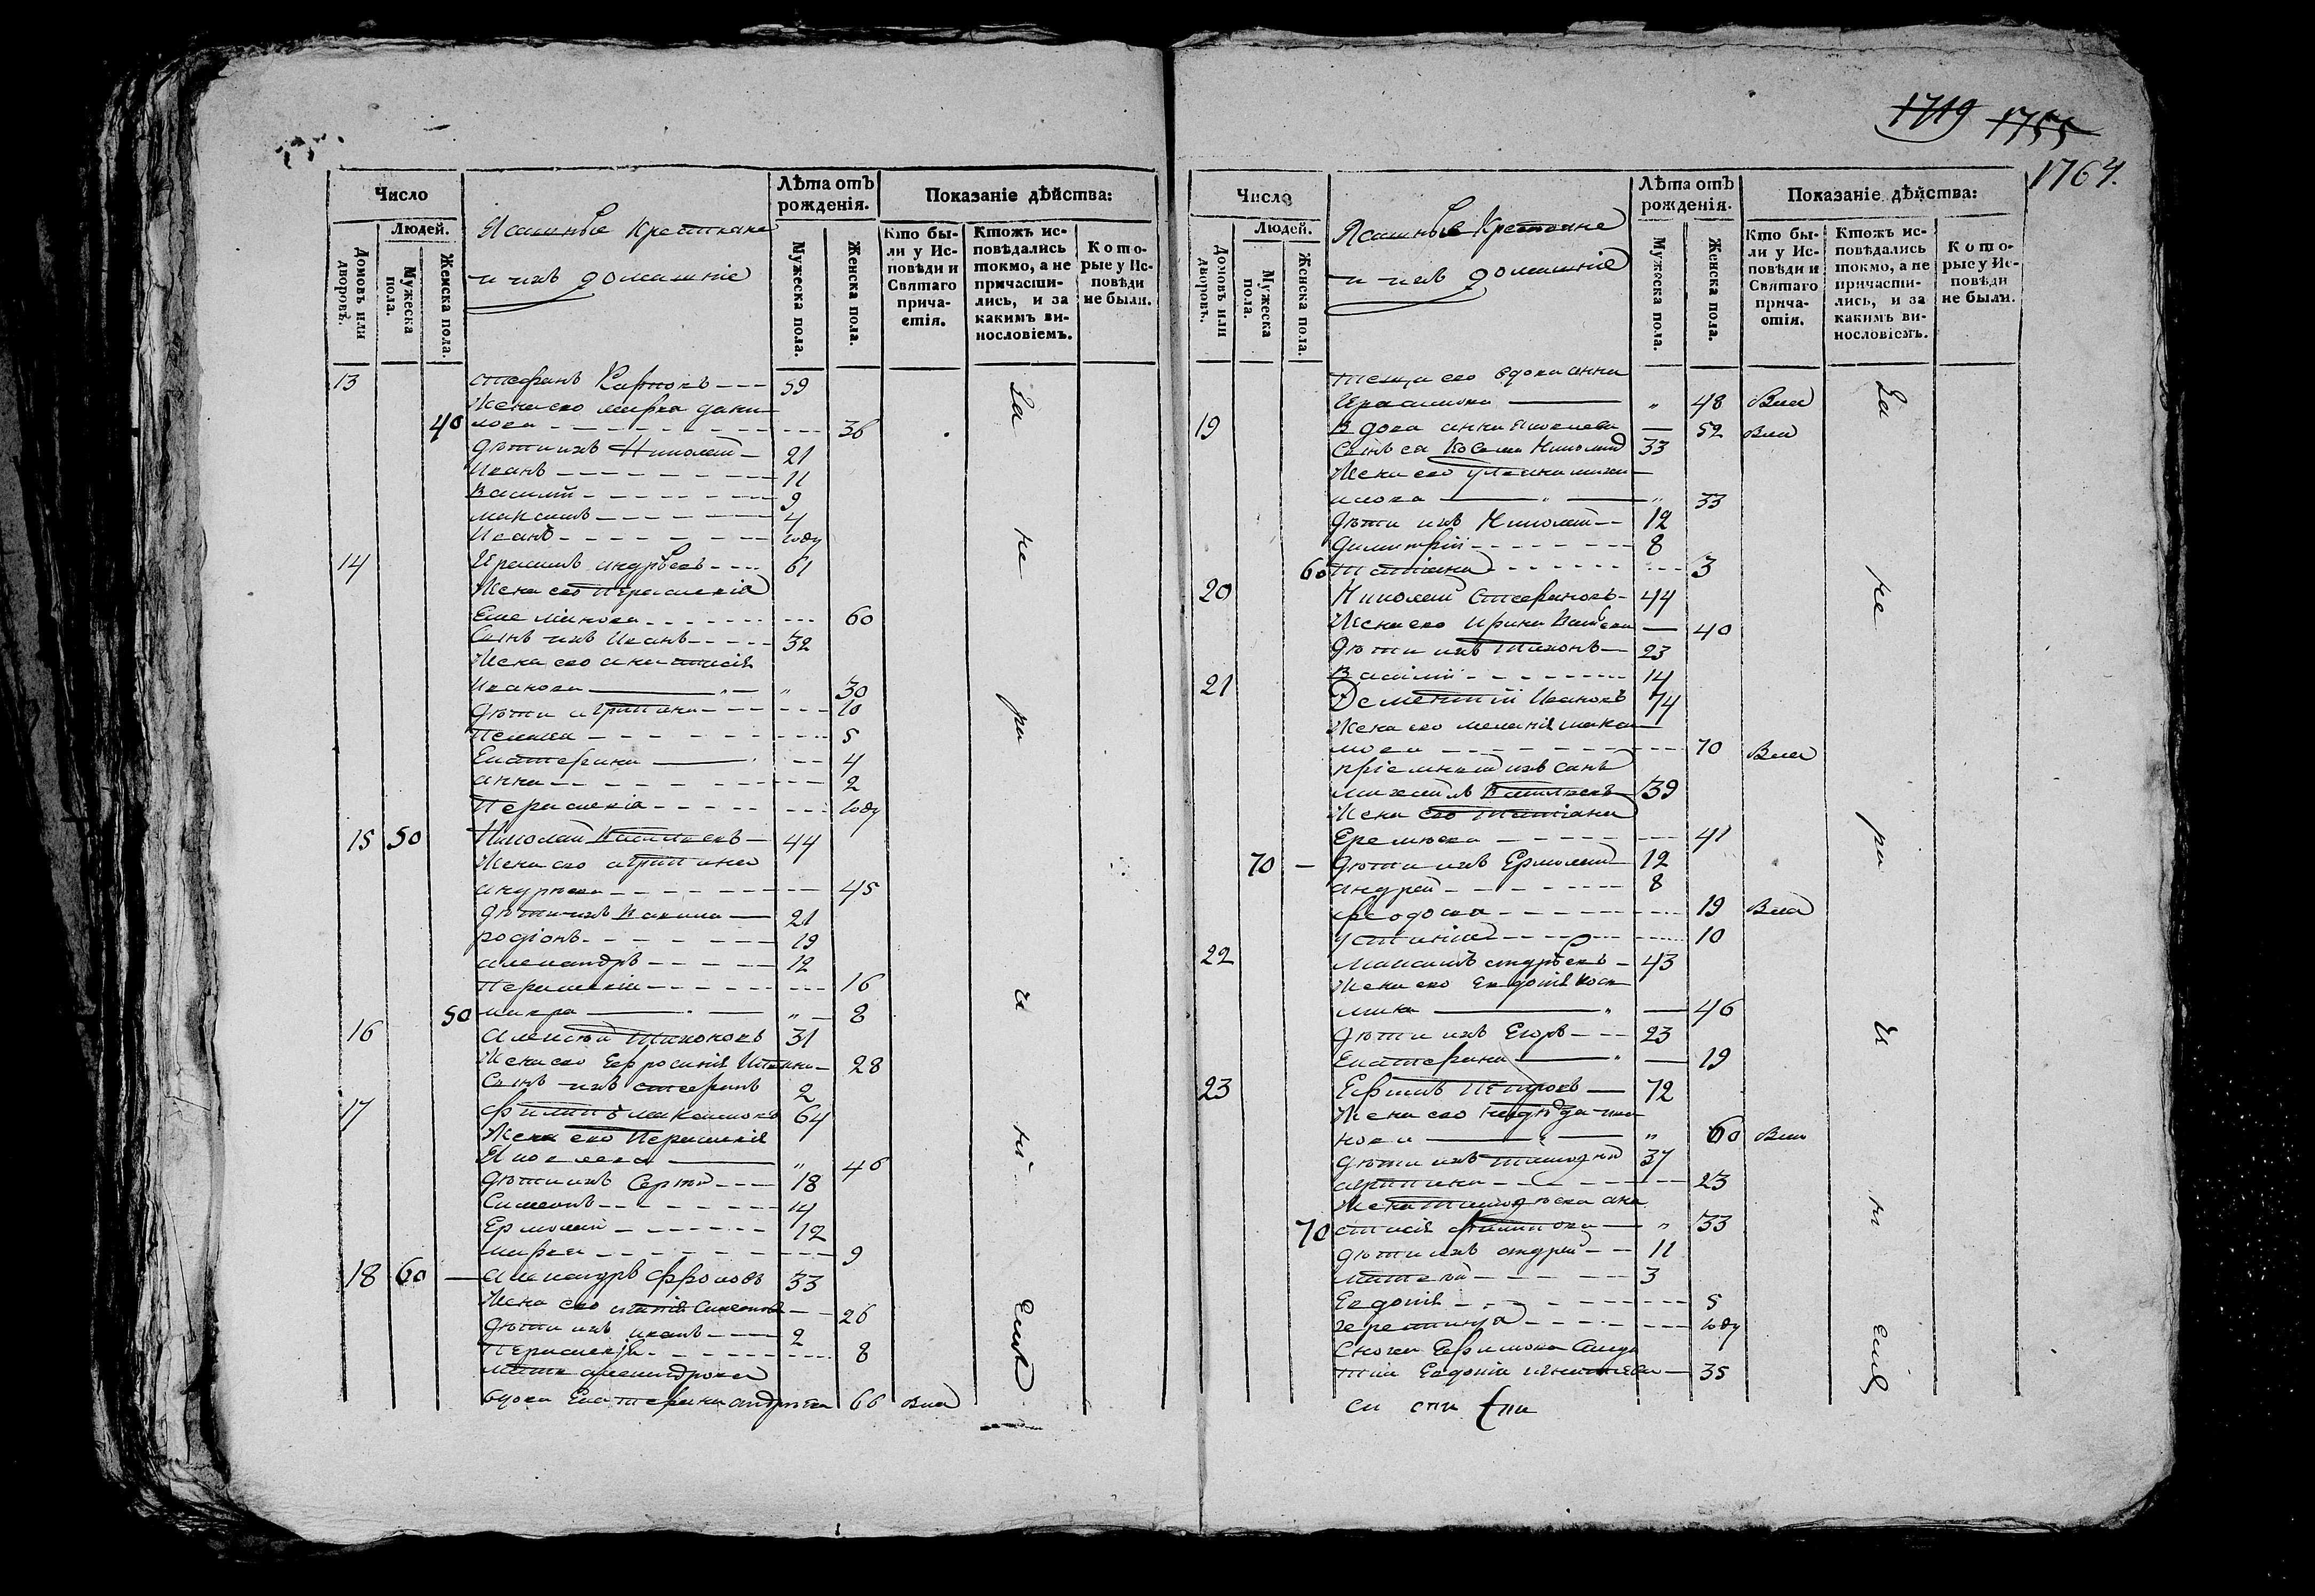 1719 1755
1764.
Число
Людей.
Домовъ или дворовъ.
Мужеска пола.
Женска пола.
Пашные крестьяне
и ихъ домашніе
Лѣта отъ рожденія.
Мужеска пола.
Женска пола.
Показаніе дѣйства:
Кто бы-
ли у Ис-
повѣди и
Святаго
прича-
стія.
Ктожъ ис-
повѣдались
токмо, а не
причасти-
лись, и за
какимъ ви-
нословіемъ.
Кото-
рые у Ис-
повѣди
не были.
13 Стефанъ Карповъ 59
Жена его Марѳа Дани-
40 лова 36
Дѣти ихъ Николай 21
Иванъ 11
Василій 9
Максимъ 4
Иванъ году
14 Герасимъ Андрѣевъ 61
Жена его Параскевія
Емельянова 60
Сынъ ихъ Иванъ 32
Жена его Анастасія
Иванова 30
Дѣти Агрипина 10
Пелагея 5
Екатерина 4
Анна 2
Параскевія году
15 50 Николай Васильевъ 44
Жена его Агрипина
Андрѣева 45
Дѣти ихъ 21
Родіонъ 19
Александръ 12
Параскевія 16
50 8
16 Алексѣй Тихоновъ 31
Жена его Ефросинія 28
Сынъ ихъ Стефанъ 2
17 Филипъ Максимовъ 64
Жена его Параскевія
Яковлева 46
Дѣти ихъ Сергѣй 18
Симеонъ 14
Ермолай 12
Марѳа 9
18 60 Александръ Фроловъ 33
Жена его Симеонова 26
Дѣти ихъ Иванъ 2
Параскевія 8
Мать Александрова
вдова Екатерина Андрѣева 66
За не ра и ні емъ
Число
Людей.
Домовъ или дворовъ.
Мужеска пола.
Женска пола.
Пашные Крестьяне
и ихъ домашніе
Лѣта отъ рожденія.
Мужеска пола.
Женска пола.
Показаніе дѣйства:
Кто бы-
ли у Ис-
повѣди и
Святаго
прича-
стія.
Ктожъ ис-
повѣдались
токмо, а не
причасти-
лись, и за
какимъ ви-
нословіемъ.
Кото-
рые у Ис-
повѣди
не были.
Теща его вдова Анна
48
19 Вдова Анна Яковлева 52
Сынъ ея Косма Николаевъ 33
Жена его Ульяна Михаи-
лова 33
Дѣти ихъ Николай 12
Димитрій 8
60 Татіана 3
20 Николай Стефановъ 44
Жена его Ирина 40
Дѣти ихъ Тихонъ 23
Василій 14
21 Дементій Ивановъ 74
Жена его Меланія
70
Пріемный ихъ сынъ
Михаилъ Васильевъ 39
Жена его Татіана
Еремѣева 41
70 Дѣти ихъ Ермолай 12
Андрей 8
Феодосія 19
Устинія 10
22 Максимъ Андрѣевъ 43
Жена его Евдокія Кось-
мина 46
Дѣти ихъ Егоръ 23
Екатерина 19
23 Ефимъ Петровъ 72
Жена его
60
Дѣти ихъ Тимофей 37
Агрипина 23
Жена Тимофѣева Ана-
70 стасія Филипова 33
Дѣти ихъ Андрей 11
Матвѣй 3
Евдокія 5
году
Сноха Ефимова
Евдокія 35
За не ра и ні емъ